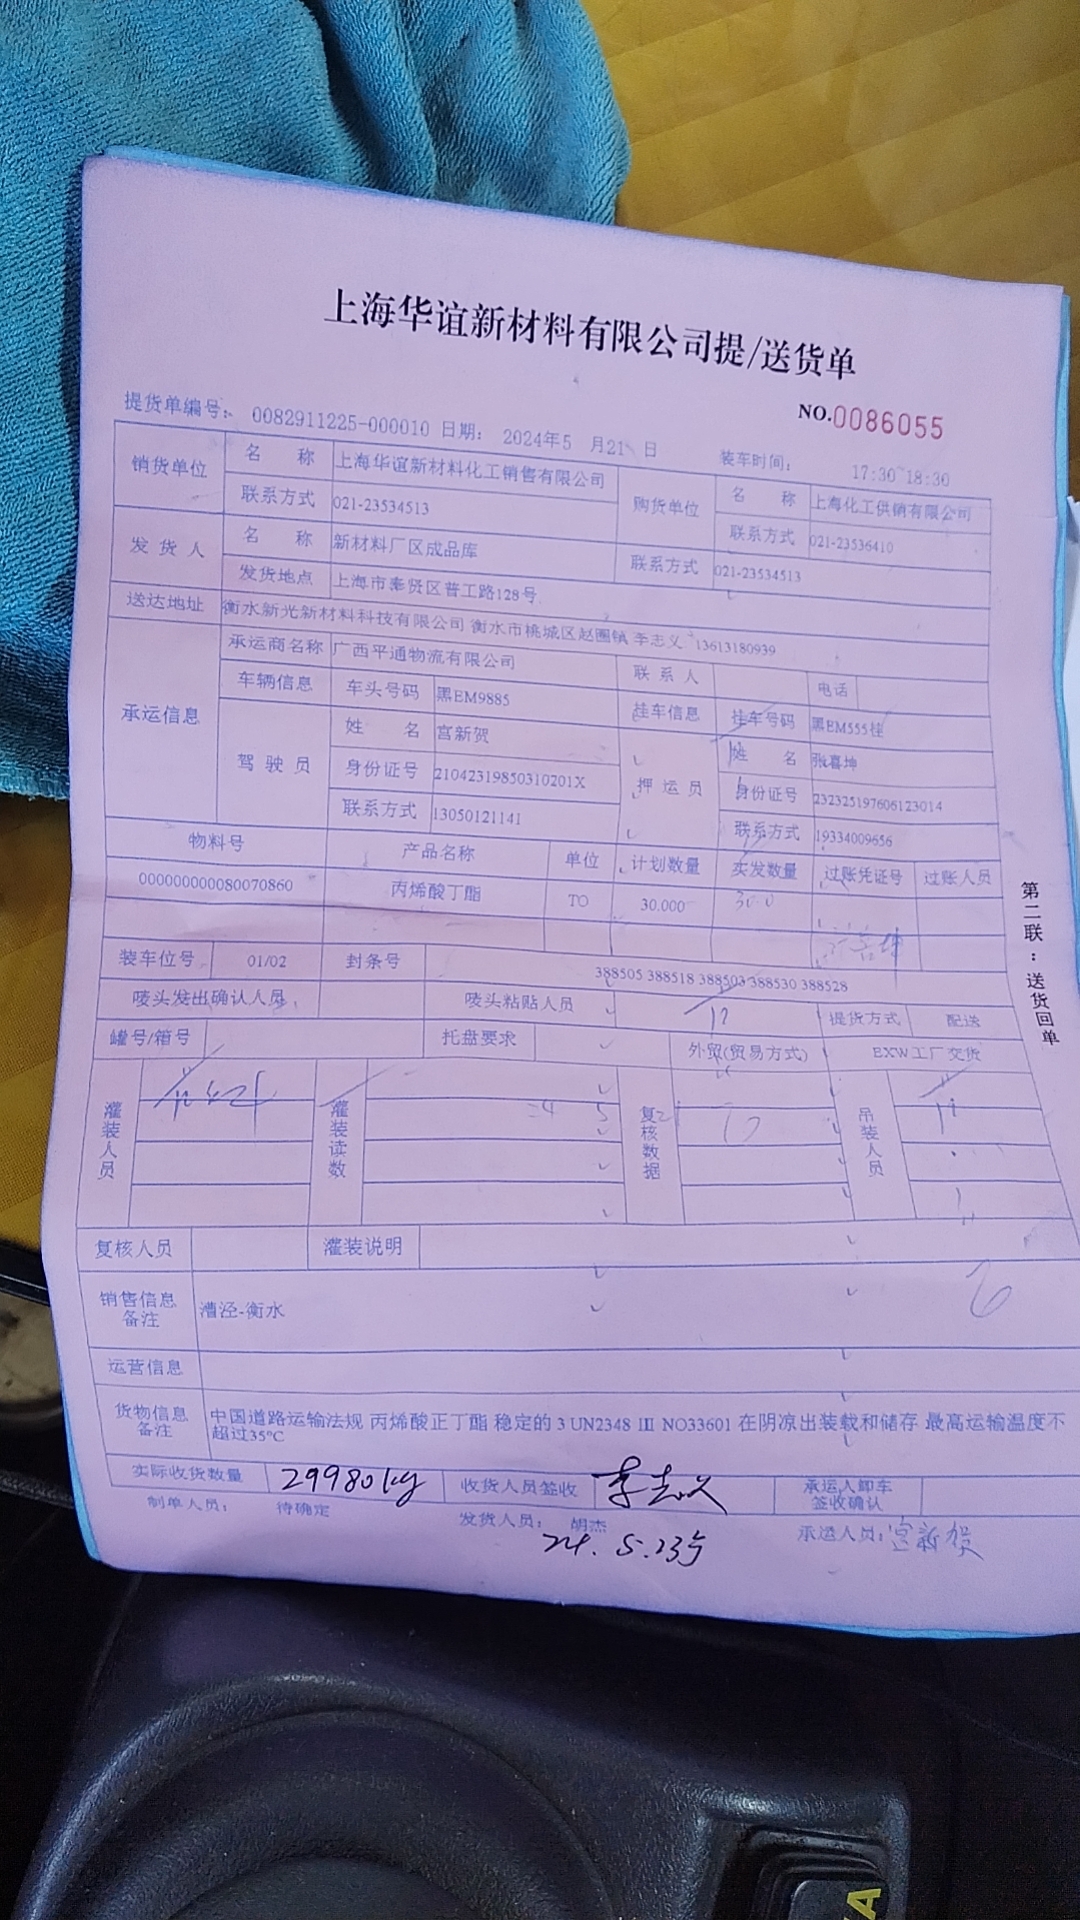 上海华谊新材料有限公司提/送货单
NO.0086055
提货单编号: 0082911225-000010 日期: 2024年5 月21 日 装车时间: 17:30~18:30
销货单位 名 称 上海华谊新材料化工销售有限公司 购货单位 名 称 上海化工供销有限公司
联系方式 021-23534513 联系方式 021-23536410
发货人 名 称 新材料厂区成品库 联系方式 021-23534513
发货地点 上海市奉贤区普工路128号
送达地址 衡水新光新材料科技有限公司 衡水市桃城区赵圈镇 李志义 13613180939
承运信息 承运商名称 广西平通物流有限公司 联系人 电话
车辆信息 车头号码 黑EM9885 挂车信息 挂车号码 黑EM555挂
驾驶员 姓 名 宫新贺 押运员 姓 名 张喜坤
身份证号 21042319850310201X 身份证号 232325197606123014
联系方式 13050121141 联系方式 19334009656
物料号 产品名称 单位 计划数量 实发数量 过账凭证号 过账人员
000000000080070860 丙烯酸丁酯 TO 30.000 30.0
装车位号 01/02 封条号 388505 388518 388503 388530 388528
唛头发出确认人员 唛头粘贴人员 提货方式 配送
罐号/箱号 托盘要求 外贸(贸易方式) EXW工厂交货
灌装人员 灌装读数 复核数据 吊装人员
复核人员 灌装说明
销售信息备注 漕泾-衡水
运营信息
货物信息备注 中国道路运输法规 丙烯酸正丁酯 稳定的 3 UN2348 III NO33601 在阴凉出装载和储存 最高运输温度不
超过35°C
实际收货数量 29980kg 收货人员签收 李志义 承运人卸车签收确认
制单人员: 待确定 发货人员: 胡杰 承运人员: 宫新贺
24.5.23号
第二联:送货回单